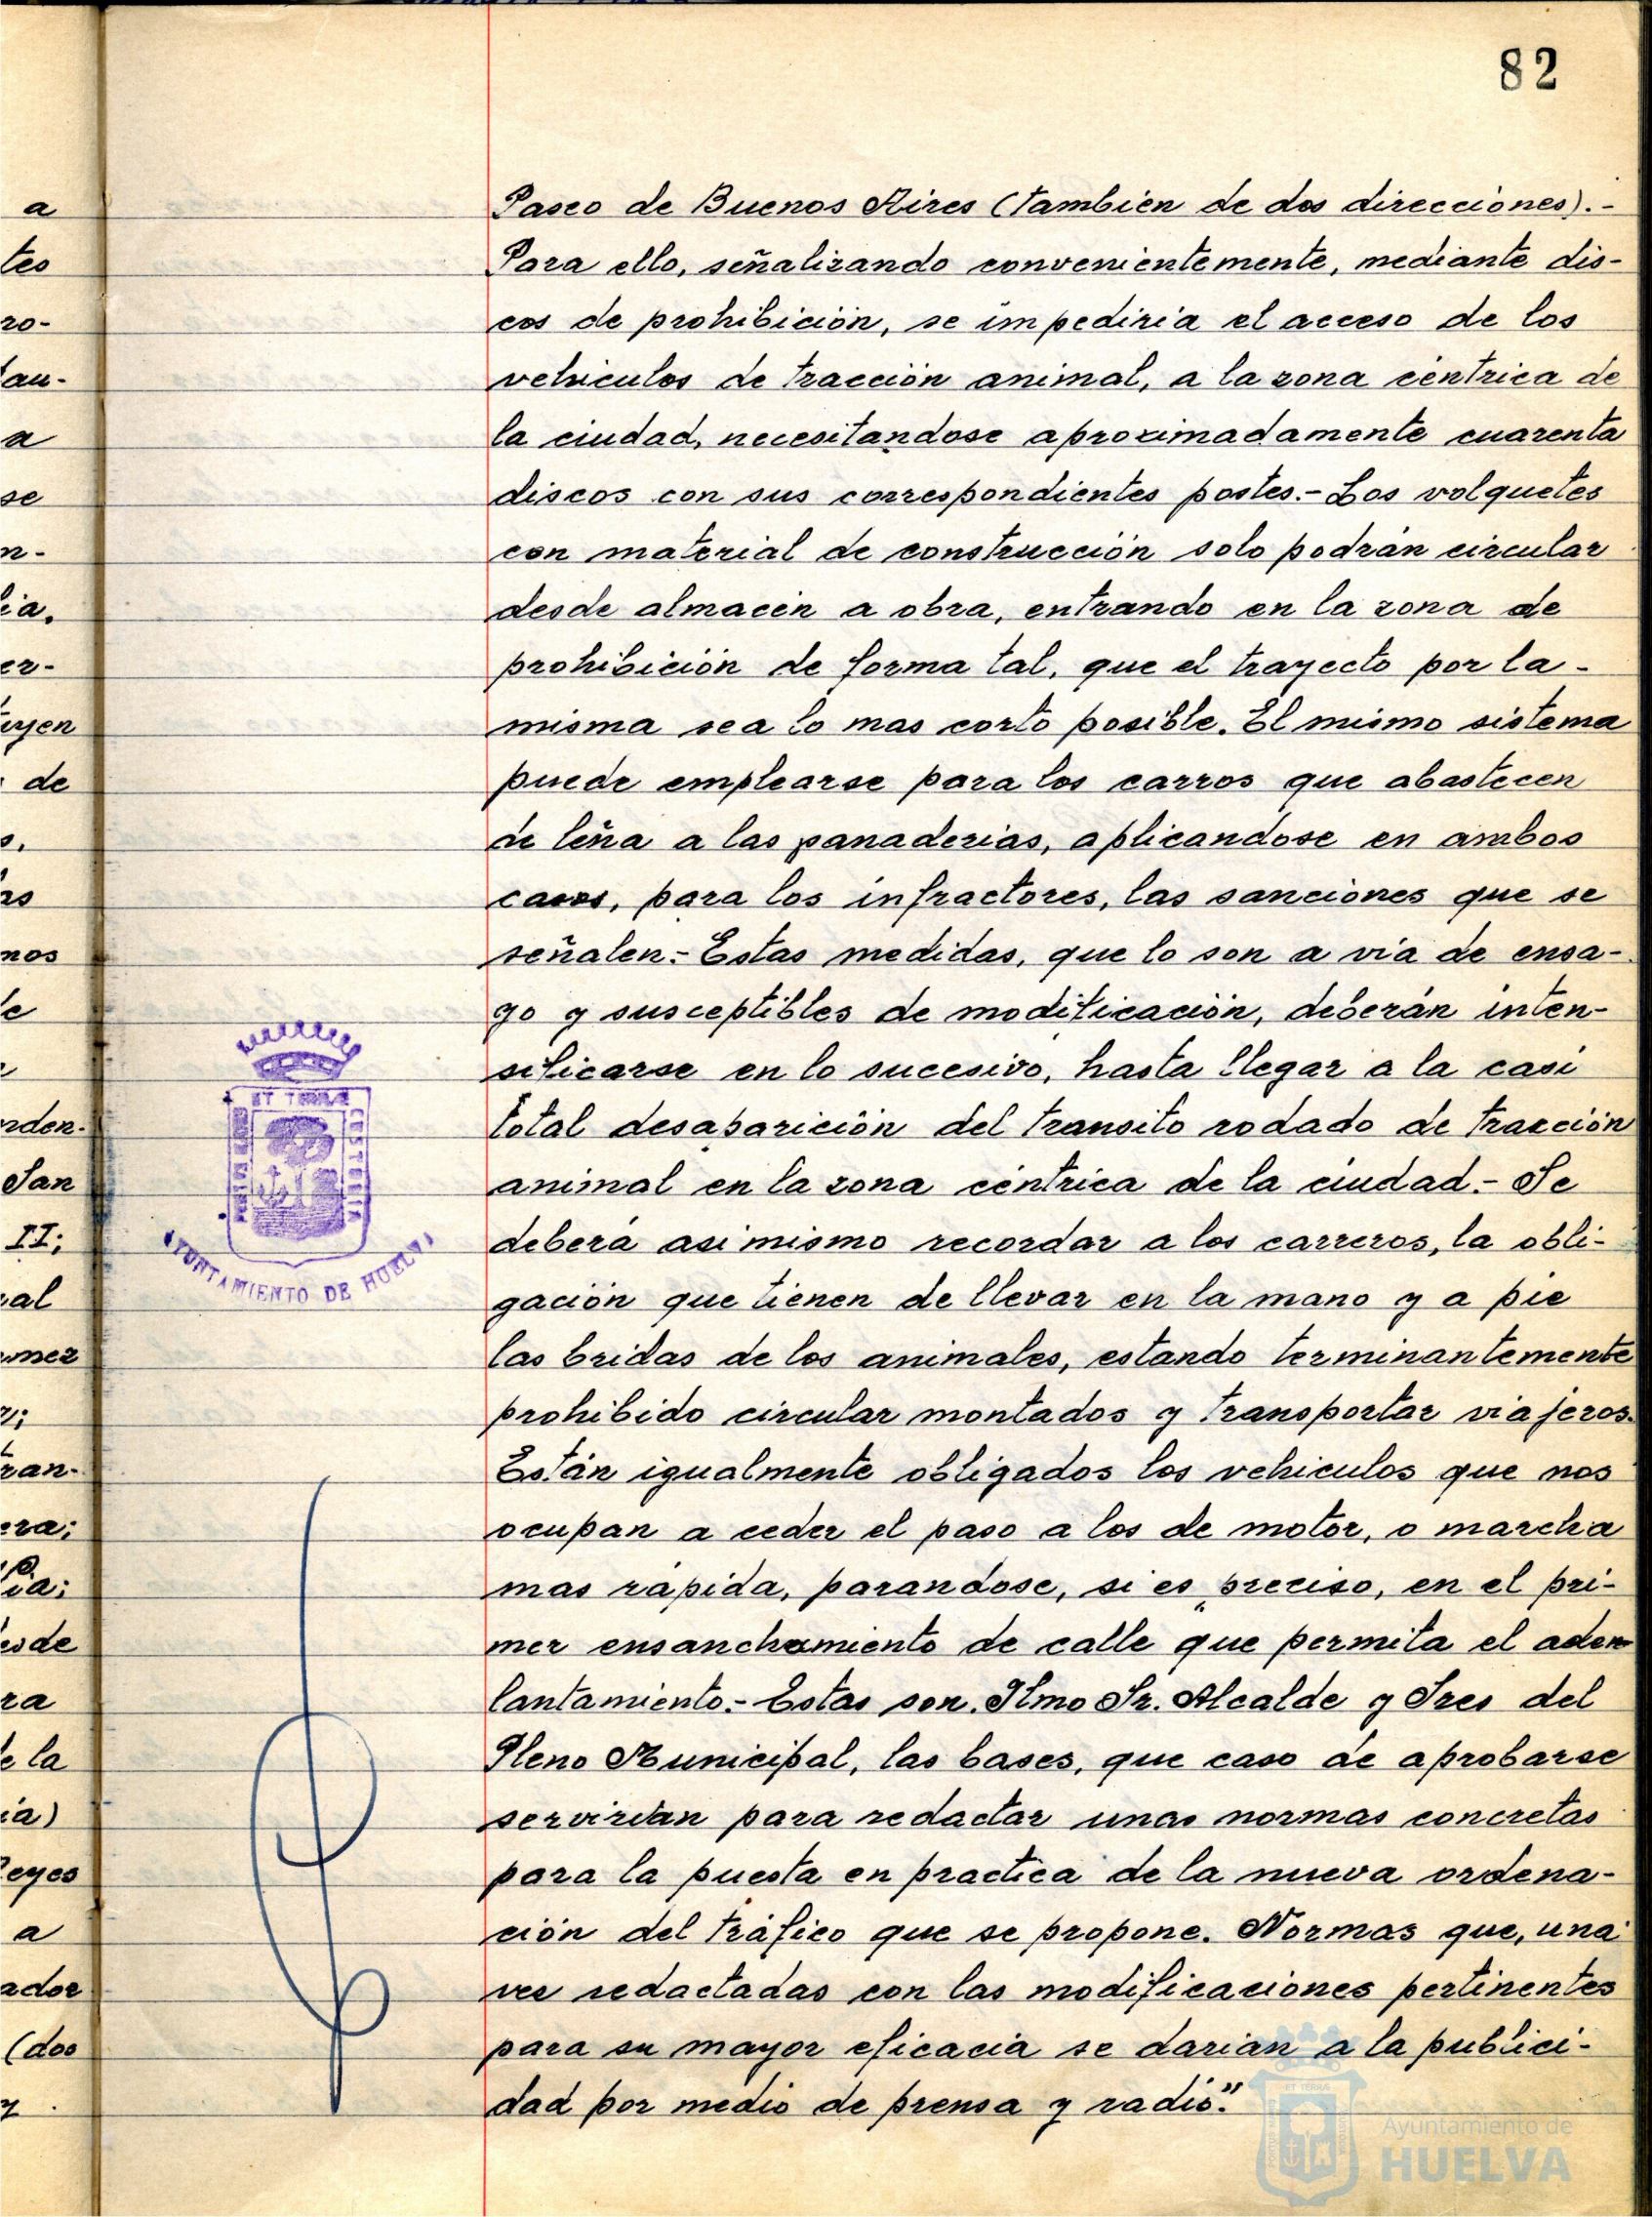 82
Paseo de Buenos Aires (tambien de dos direcciones).-
Para ello, señalizando convenientemente, mediante dis-
cos de prohibición, se impediria el acceso de los
vehiculos de tracción animal, a la zona céntrica de
la ciudad, necesitandose aproximadamente cuarenta
discos con sus correspondientes postes.- Los volquetes
con material de construcción solo podrán circular
desde almacén a obra, entrando en la zona de
prohibición de forma tal, que el trayecto por la-
misma sea lo mas corto posible. El mismo sistema
puede emplearse para los carros que abastecen
de leña a las panaderias, aplicandose en ambos
casos, para los infractores, las sanciones que se
señalen.- Estas medidas, que lo son a via de ensa-
yo y susceptibles de modificación, deberán inten-
sificarse en lo sucesivo, hasta llegar a la casi
total desaparición del transito rodado de tracción
animal en la zona céntrica de la ciudad.- Se
deberá asi mismo recordar a los carreros, la obli-
gación que tienen de llevar en la mano y a pie
las bridas de los animales, estando terminantemente
prohibido circular montados y transportar viajeros.
Están igualmente obligados los vehiculos que nos
ocupan a ceder el paso a los de motor, o marcha
mas rápida, parandose, si es preciso, en el pri-
mer ensanchamiento de calle que permita el ade-
lantamiento.- Estas son. Iltmo Sr. Alcalde y Sres del
Pleno Municipal, las bases, que caso de aprobarse
servirian para redactar unas normas concretas
para la puesta en practica de la nueva ordena-
ción del tráfico que se propone. Normas que, una
vez redactadas con las modificaciones pertinentes
para su mayor eficacia se darian a la publici-
dad por medio de prensa y radio."
AYUNTAMIENTO DE HUELVA
Ayuntamiento de
HUELVA